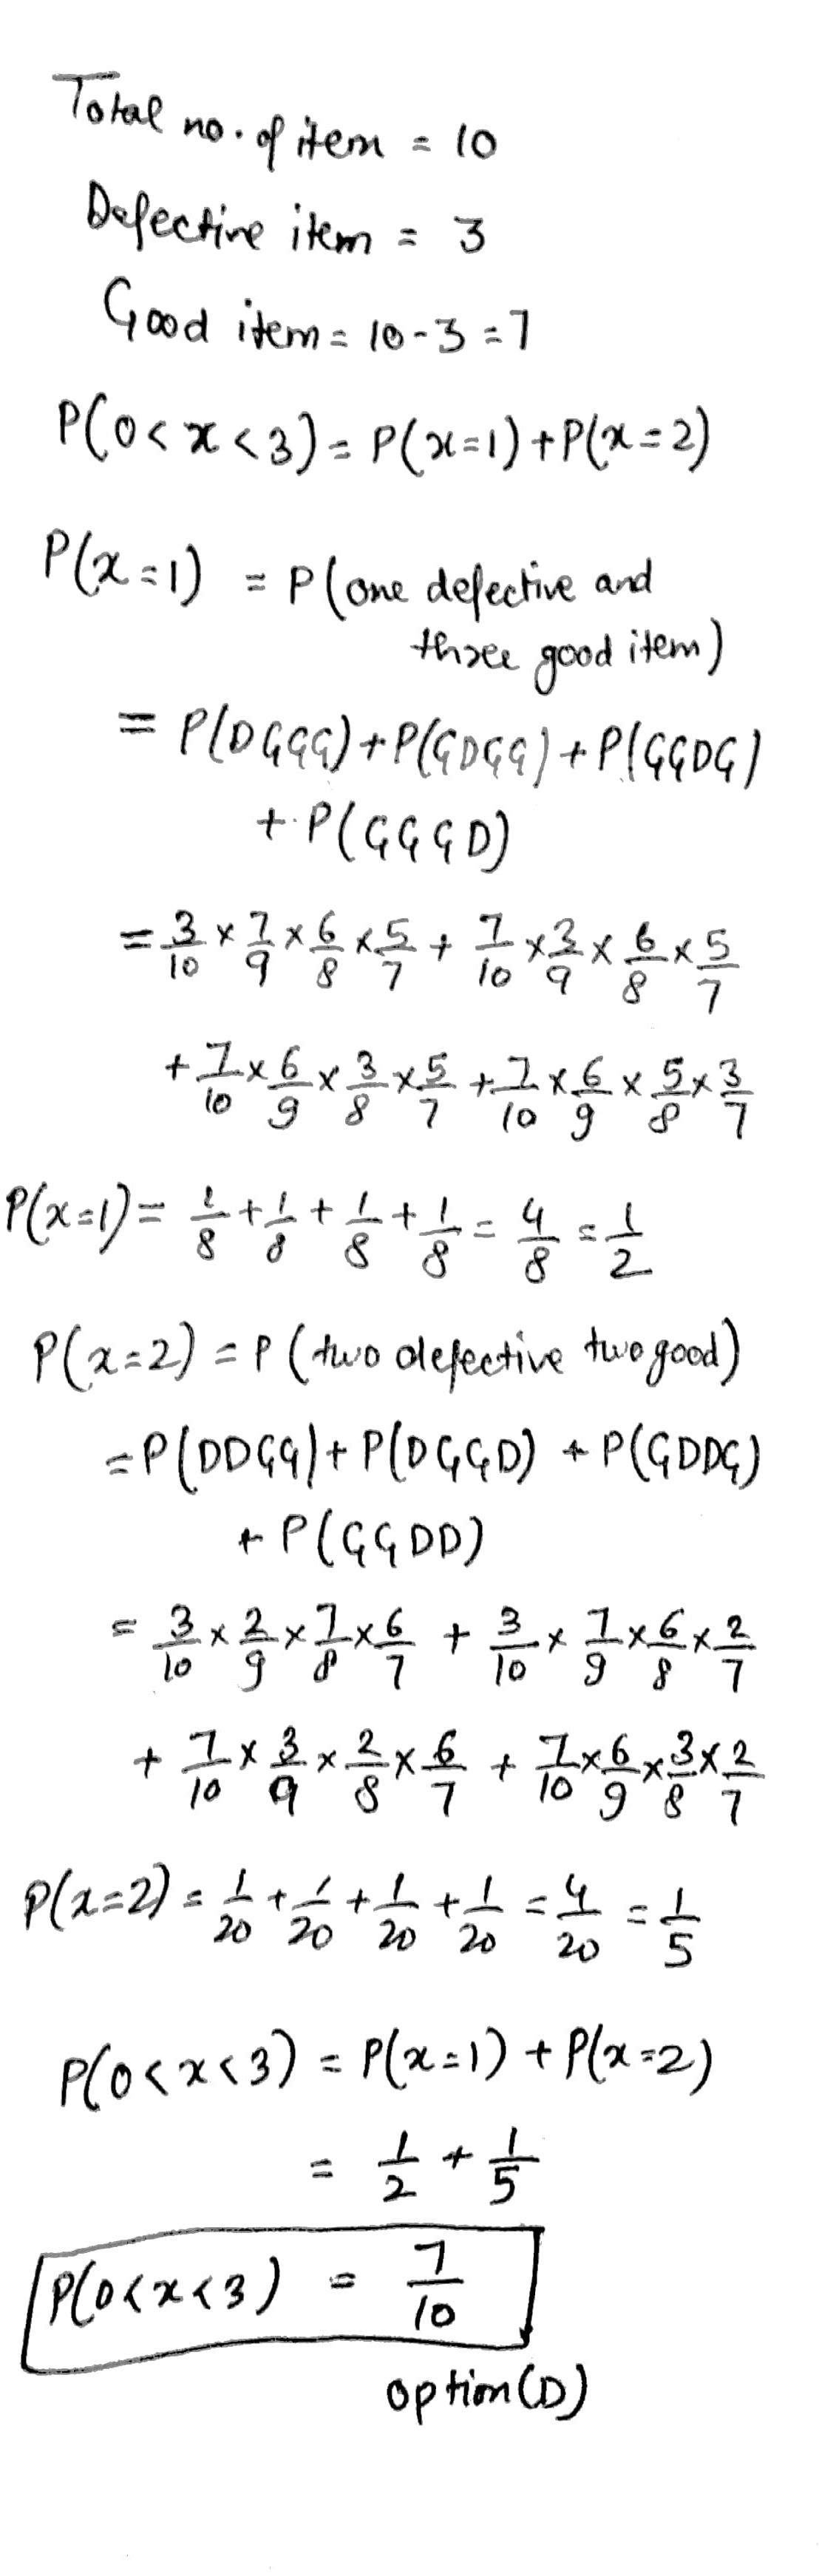 Total no. of item = 10
Defective item = 3
Good item = 10-3 = 7
P(0<x<3) = P(x=1)+P(x=2)
P(x=1) = P(one defective and
three good item)
= P(DGGG)+P(GDGG)+P(GGDG)
+ P(GGGD)
= 3/10 × 7/9 × 6/8 × 5/7 + 7/10 × 3/9 × 6/8 × 5/7
+ 7/10 × 6/9 × 3/8 × 5/7 + 7/10 × 6/9 × 5/8 × 3/7
P(x=1) = 1/8 + 1/8 + 1/8 + 1/8 = 4/8 = 1/2
P(x=2) = P(two defective two good)
= P(DDGG)+ P(DGGD) + P(GDDG)
+ P(GGDD)
= 3/10 × 2/9 × 7/8 × 6/7 + 3/10 × 7/9 × 6/8 × 2/7
+ 7/10 × 3/9 × 2/8 × 6/7 + 7/10 × 6/9 × 3/8 × 2/7
P(x=2) = 1/20 + 1/20 + 1/20 + 1/20 = 4/20 = 1/5
P(0<x<3) = P(x=1) + P(x=2)
= 1/2 + 1/5
P(0<x<3) = 7/10
option(D)